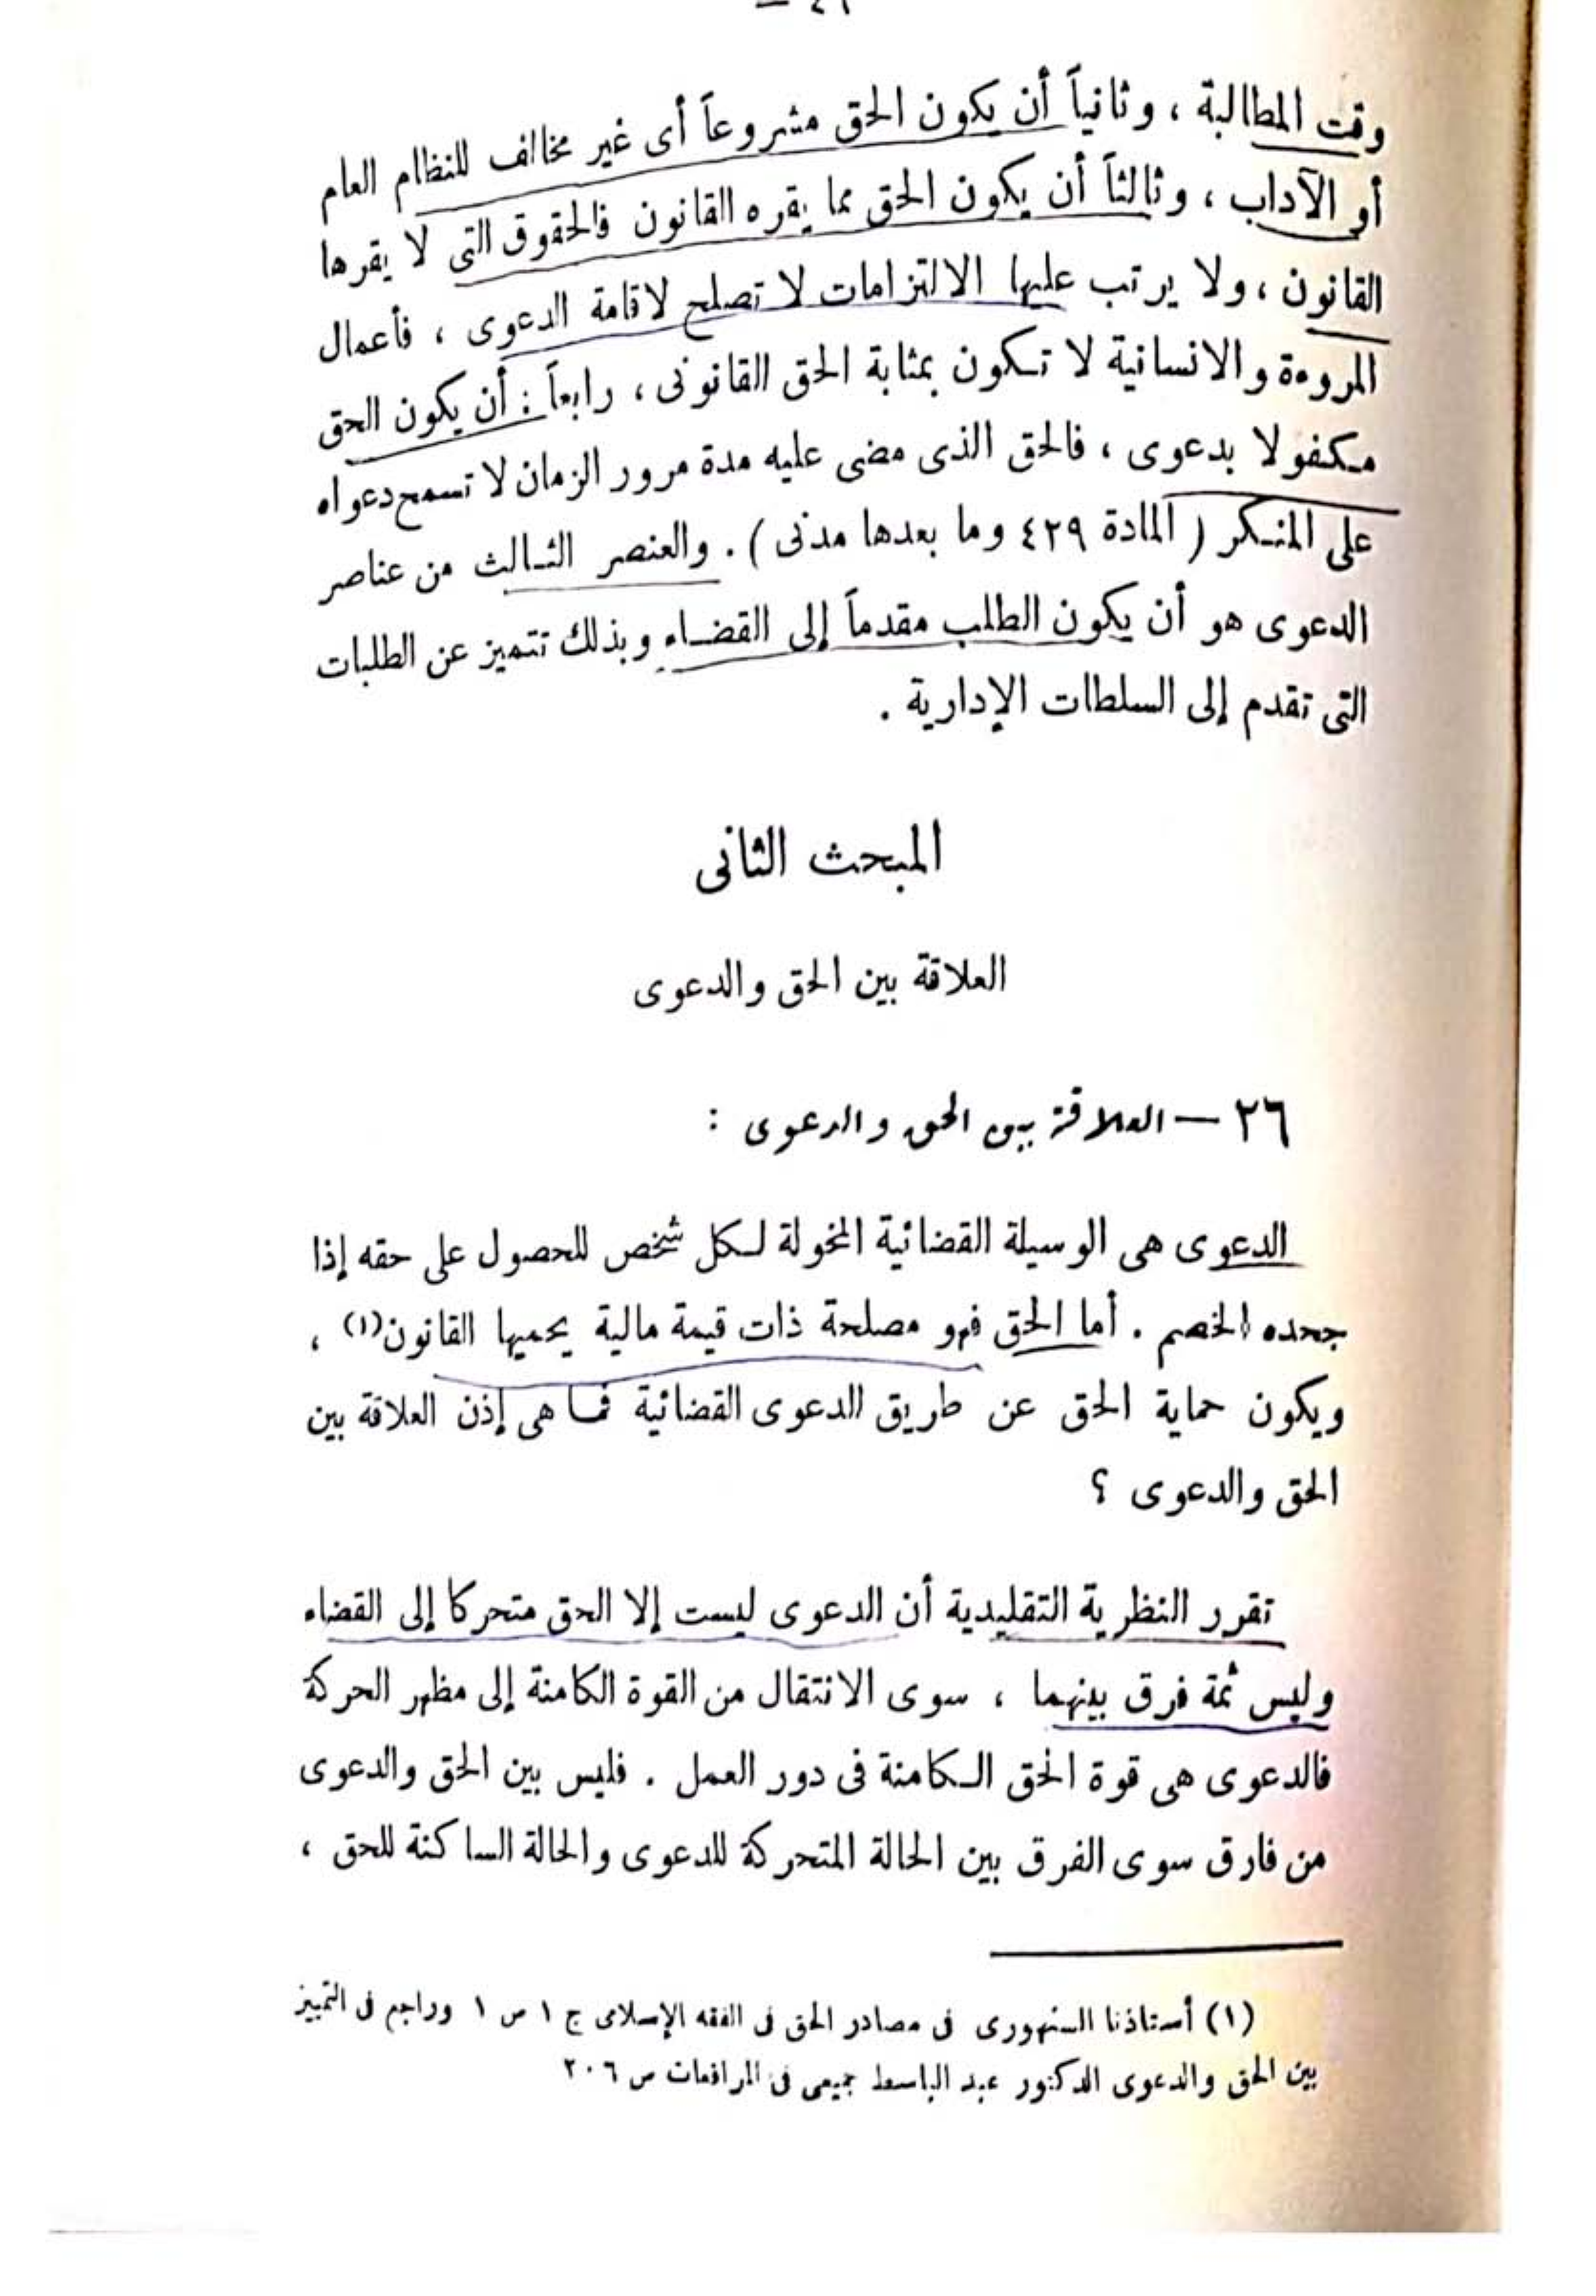 وقت المطالبة ، وثانياً أن يكون الحق مشروعاً أى غير مخالف للنظام العام
أو الآداب ، وثالثاً أن يكون الحق مما يقره القانون فالحقوق التى لا يقرها
القانون ، ولا يرتب عليها الالتزامات لا تصلح لاقامة الدعوى ، فأعمال
المروءة والانسانية لا تكون بمثابة الحق القانونى ، رابعاً : أن يكون الحق
مكفولا بدعوى ، فالحق الذى مضى عليه مدة مرور الزمان لا تسمح دعواه
على المنكر ( المادة ٤٢٩ وما بعدها مدنى ) . والعنصر الثالث من عناصر
الدعوى هو أن يكون الطلب مقدماً إلى القضاء وبذلك تتميز عن الطلبات
التى تقدم إلى السلطات الإدارية .
المبحث الثانى
العلاقة بين الحق والدعوى
٢٦ — العلاقة بين الحق والدعوى :
الدعوى هى الوسيلة القضائية المخولة لكل شخص للحصول على حقه إذا
جحده الخصم . أما الحق فهو مصلحة ذات قيمة مالية يحميها القانون(١) ،
ويكون حماية الحق عن طريق الدعوى القضائية فما هى إذن العلاقة بين
الحق والدعوى ؟
تقرر النظرية التقليدية أن الدعوى ليست إلا الحق متحركا إلى القضاء
وليس ثمة فرق بينهما ، سوى الانتقال من القوة الكامنة إلى مظهر الحركة
فالدعوى هى قوة الحق الكامنة فى دور العمل . فليس بين الحق والدعوى
من فارق سوى الفرق بين الحالة المتحركة للدعوى والحالة الساكنة للحق ،
(١) أستاذنا السنهورى فى مصادر الحق فى الفقه الإسلامى ج ١ ص ١ وراجع فى التمييز
بين الحق والدعوى الدكتور عبد الباسط جميعى فى المرافعات ص ٢٠٦